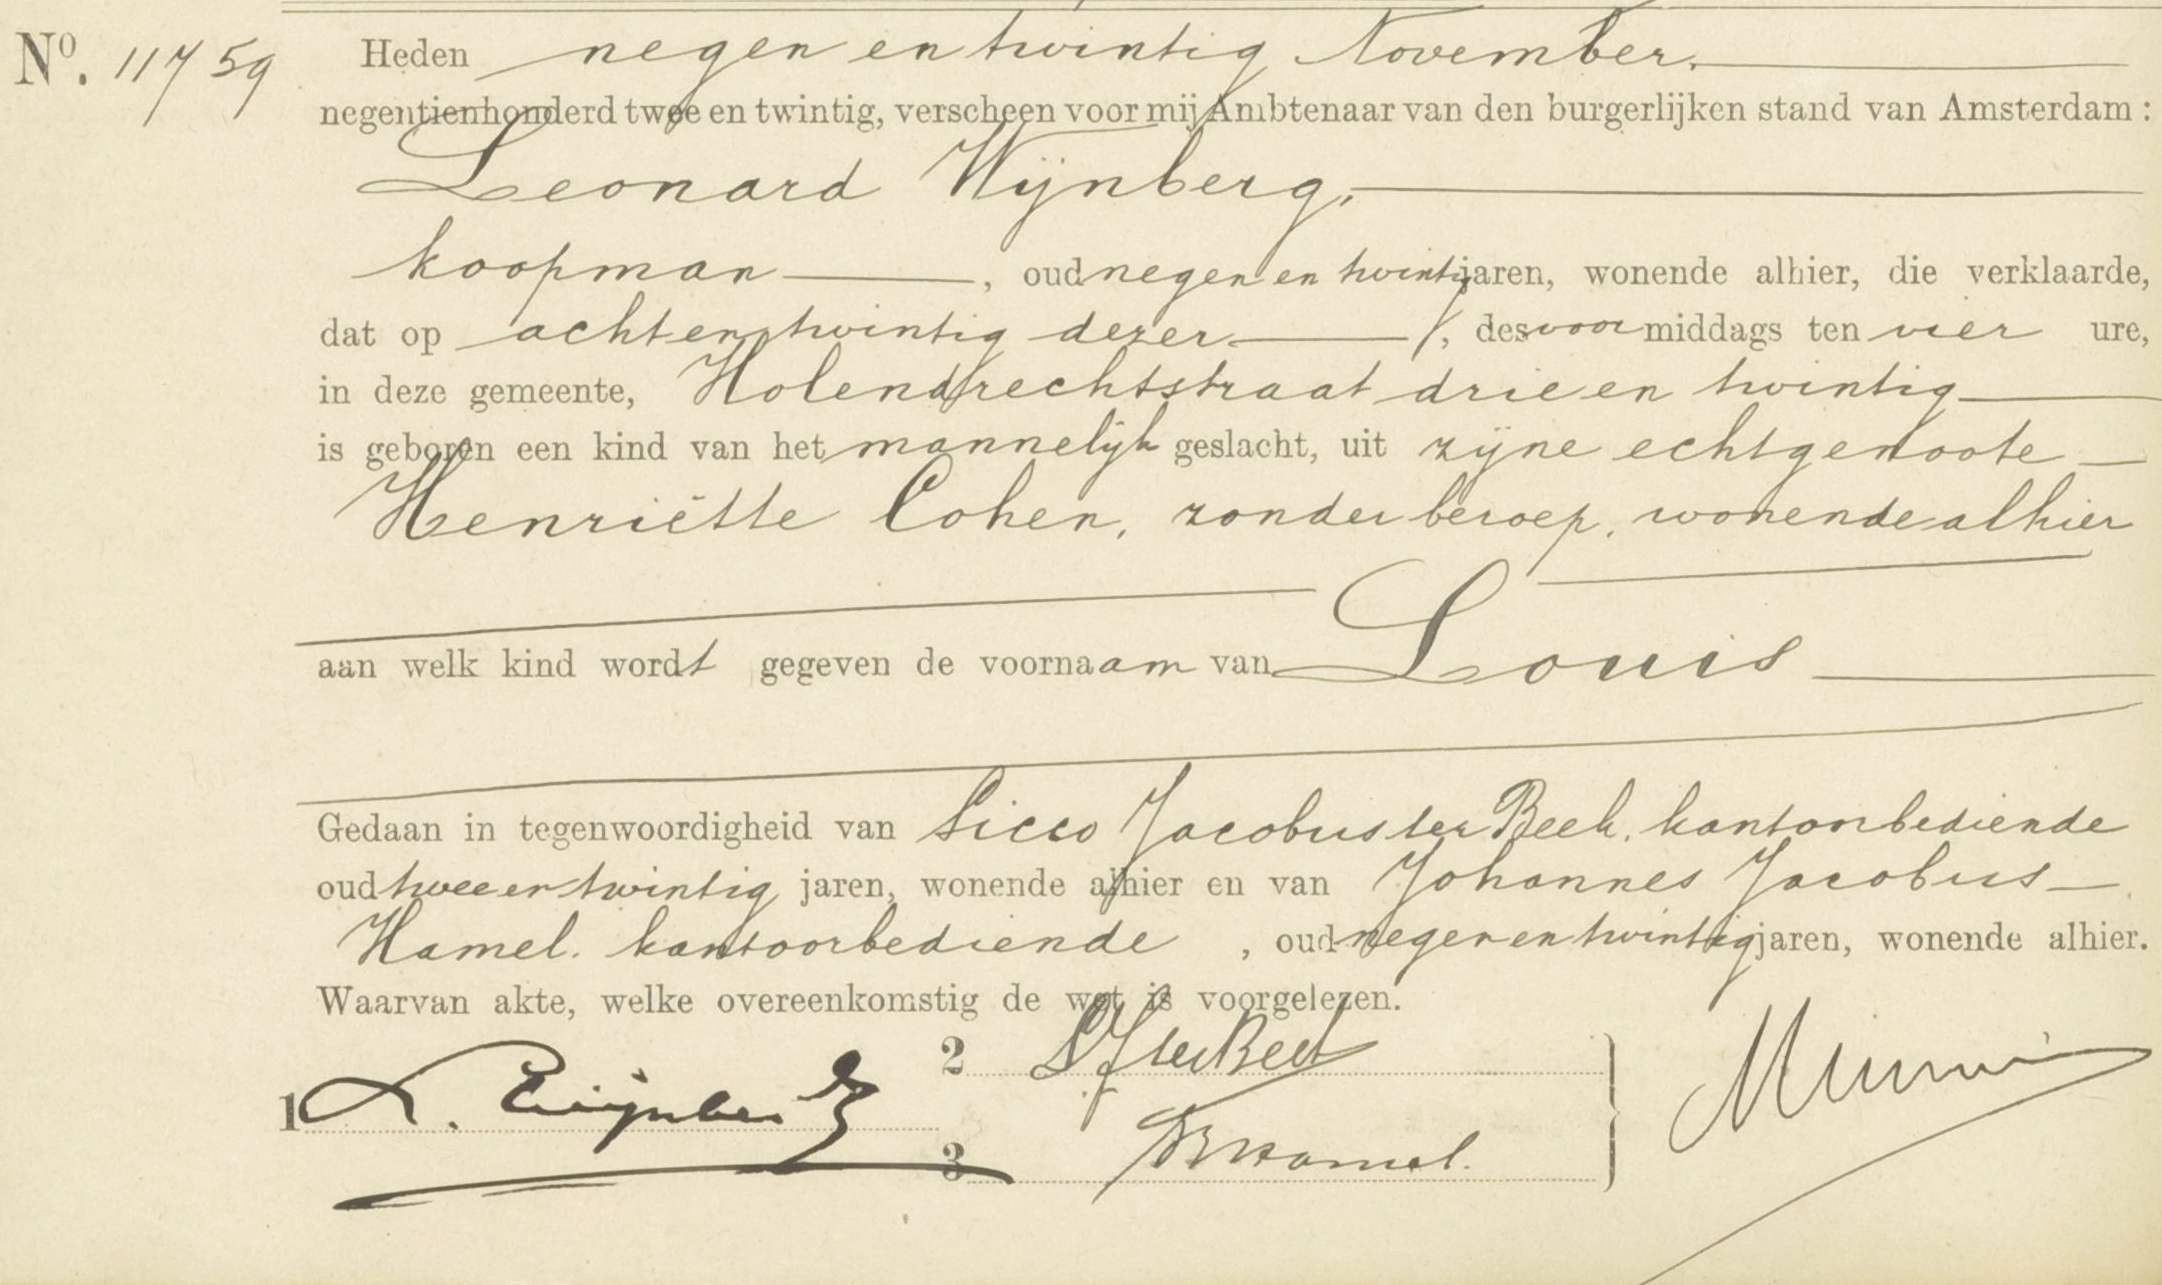 No. 11759 Heden negen en twintig November.
negentienhonderd twee en twintig, verscheen voor mij Ambtenaar van den burgerlijken stand van Amsterdam:
Leonard Wijnberg,
koopman, oud negen en twintig jaren, wonende alhier, die verklaarde,
dat op acht en twintig dezer, des voormiddags ten vier ure,
in deze gemeente, Holendrechtstraat drie en twintig
is geboren een kind van het mannelijk geslacht, uit zijne echtgenoote
Henriëtte Cohen, zonder beroep, wonende alhier
aan welk kind wordt gegeven de voornaam van Louis
Gedaan in tegenwoordigheid van Sicco Jacobus ter Beek, kantoorbediende
oud twee en twintig jaren, wonende alhier en van Johannes Jacobus
Hamel, kantoorbediende, oud negen en twintig jaren, wonende alhier.
Waarvan akte, welke overeenkomstig de wet is voorgelezen.
2 SJ ter Beek
1 L. Wijnberg
3 Hamel.